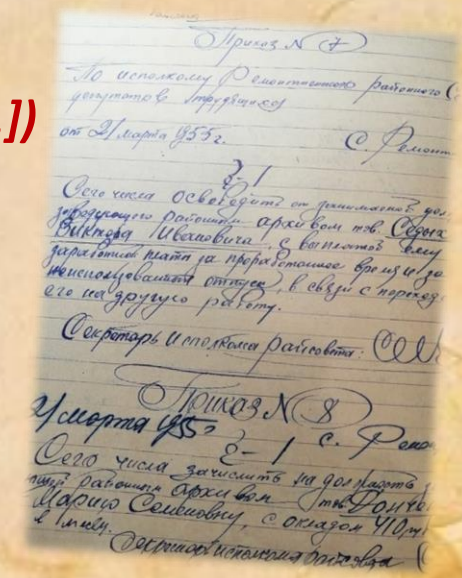 ])
Приказ № 7
По исполкому Ремонтненского районного С
депутатов трудящихся
от 21 марта 1955 г. С. Ремонт
§-1
Сего числа освободить от занимаемой дол
заведующего районным архивом тов. Седых
Виктора Ивановича, с выплатой ему
заработной платы за проработанное время и за
неиспользованный отпуск, в связи с переход
его на другую работу.
Секретарь исполкома райсовета:
Приказ № 8
21 марта 1955 г. с. Ремо
§-1
Сего числа зачислить на должность
районным архивом тов. Донче
Марию Семеновну, с окладом 410 ру
в м-ц.
Секретарь исполкома райсовета (